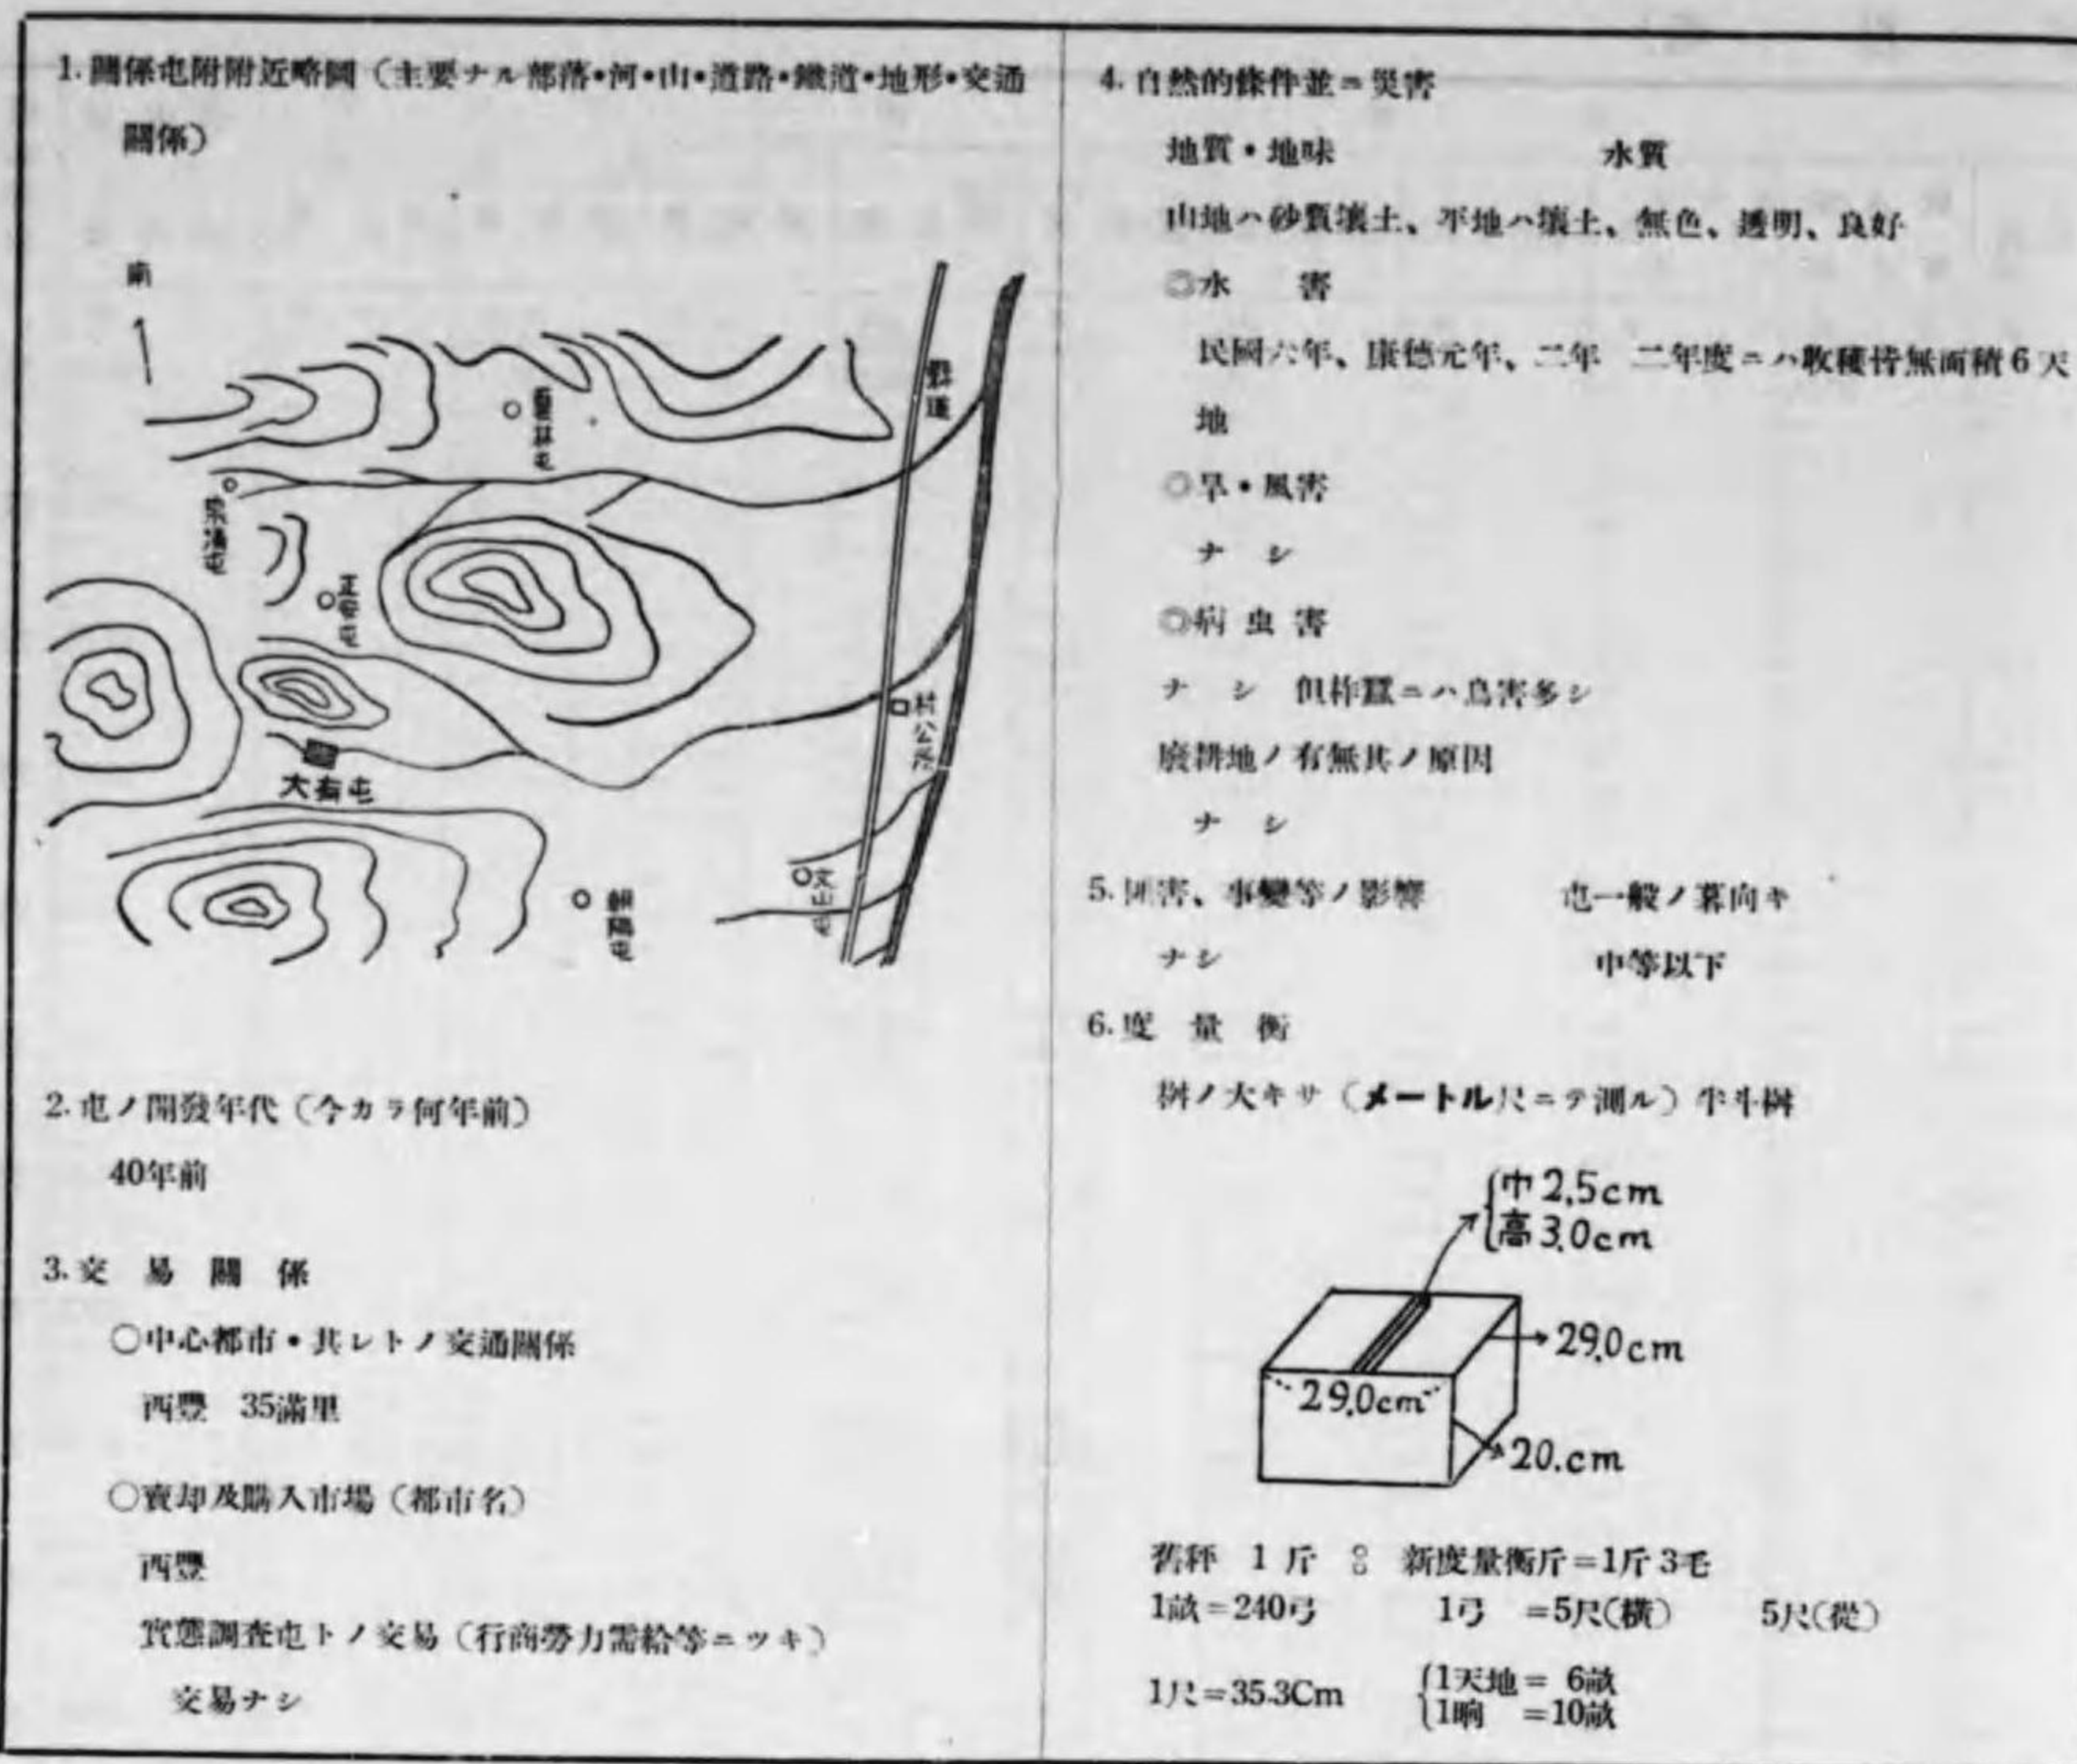 1. 關係屯附附近略圖（主要ナル部落•河•山•道路•鐵道•地形•交通
關係）
南
縣道
正安屯
村公所
大有屯
文山屯
朝陽屯
2. 屯ノ開發年代（今カラ何年前）
40年前
3. 交易關係
○中心都市•其レトノ交通關係
西豐 35滿里
○賣却及購入市場（都市名）
西豐
實態調査屯トノ交易（行商勞力需給等ニツキ）
交易ナシ
4. 自然的條件並ニ災害
地質•地味 水質
山地ハ砂質壤土、平地ハ壤土、無色、透明、良好
◎水害
民國六年、康德元年、二年 二年度ニハ收穫皆無面積6天
地
◎旱•風害
ナシ
◎病虫害
ナシ 但柞蠶ニハ鳥害多シ
廢耕地ノ有無其ノ原因
ナシ
5. 匪害、事變等ノ影響 屯一般ノ暮向キ
ナシ 中等以下
6. 度量衡
桝ノ大キサ（メートル尺ニテ測ル）半斗桝
巾2.5cm
高3.0cm
29.0cm
29.0cm
20.cm
舊秤 1斤 : 新度量衡斤=1斤3毛
1畝=240弓 1弓 =5尺(橫) 5尺(從)
1尺=35.3Cm 1天地= 6畝
1晌 =10畝